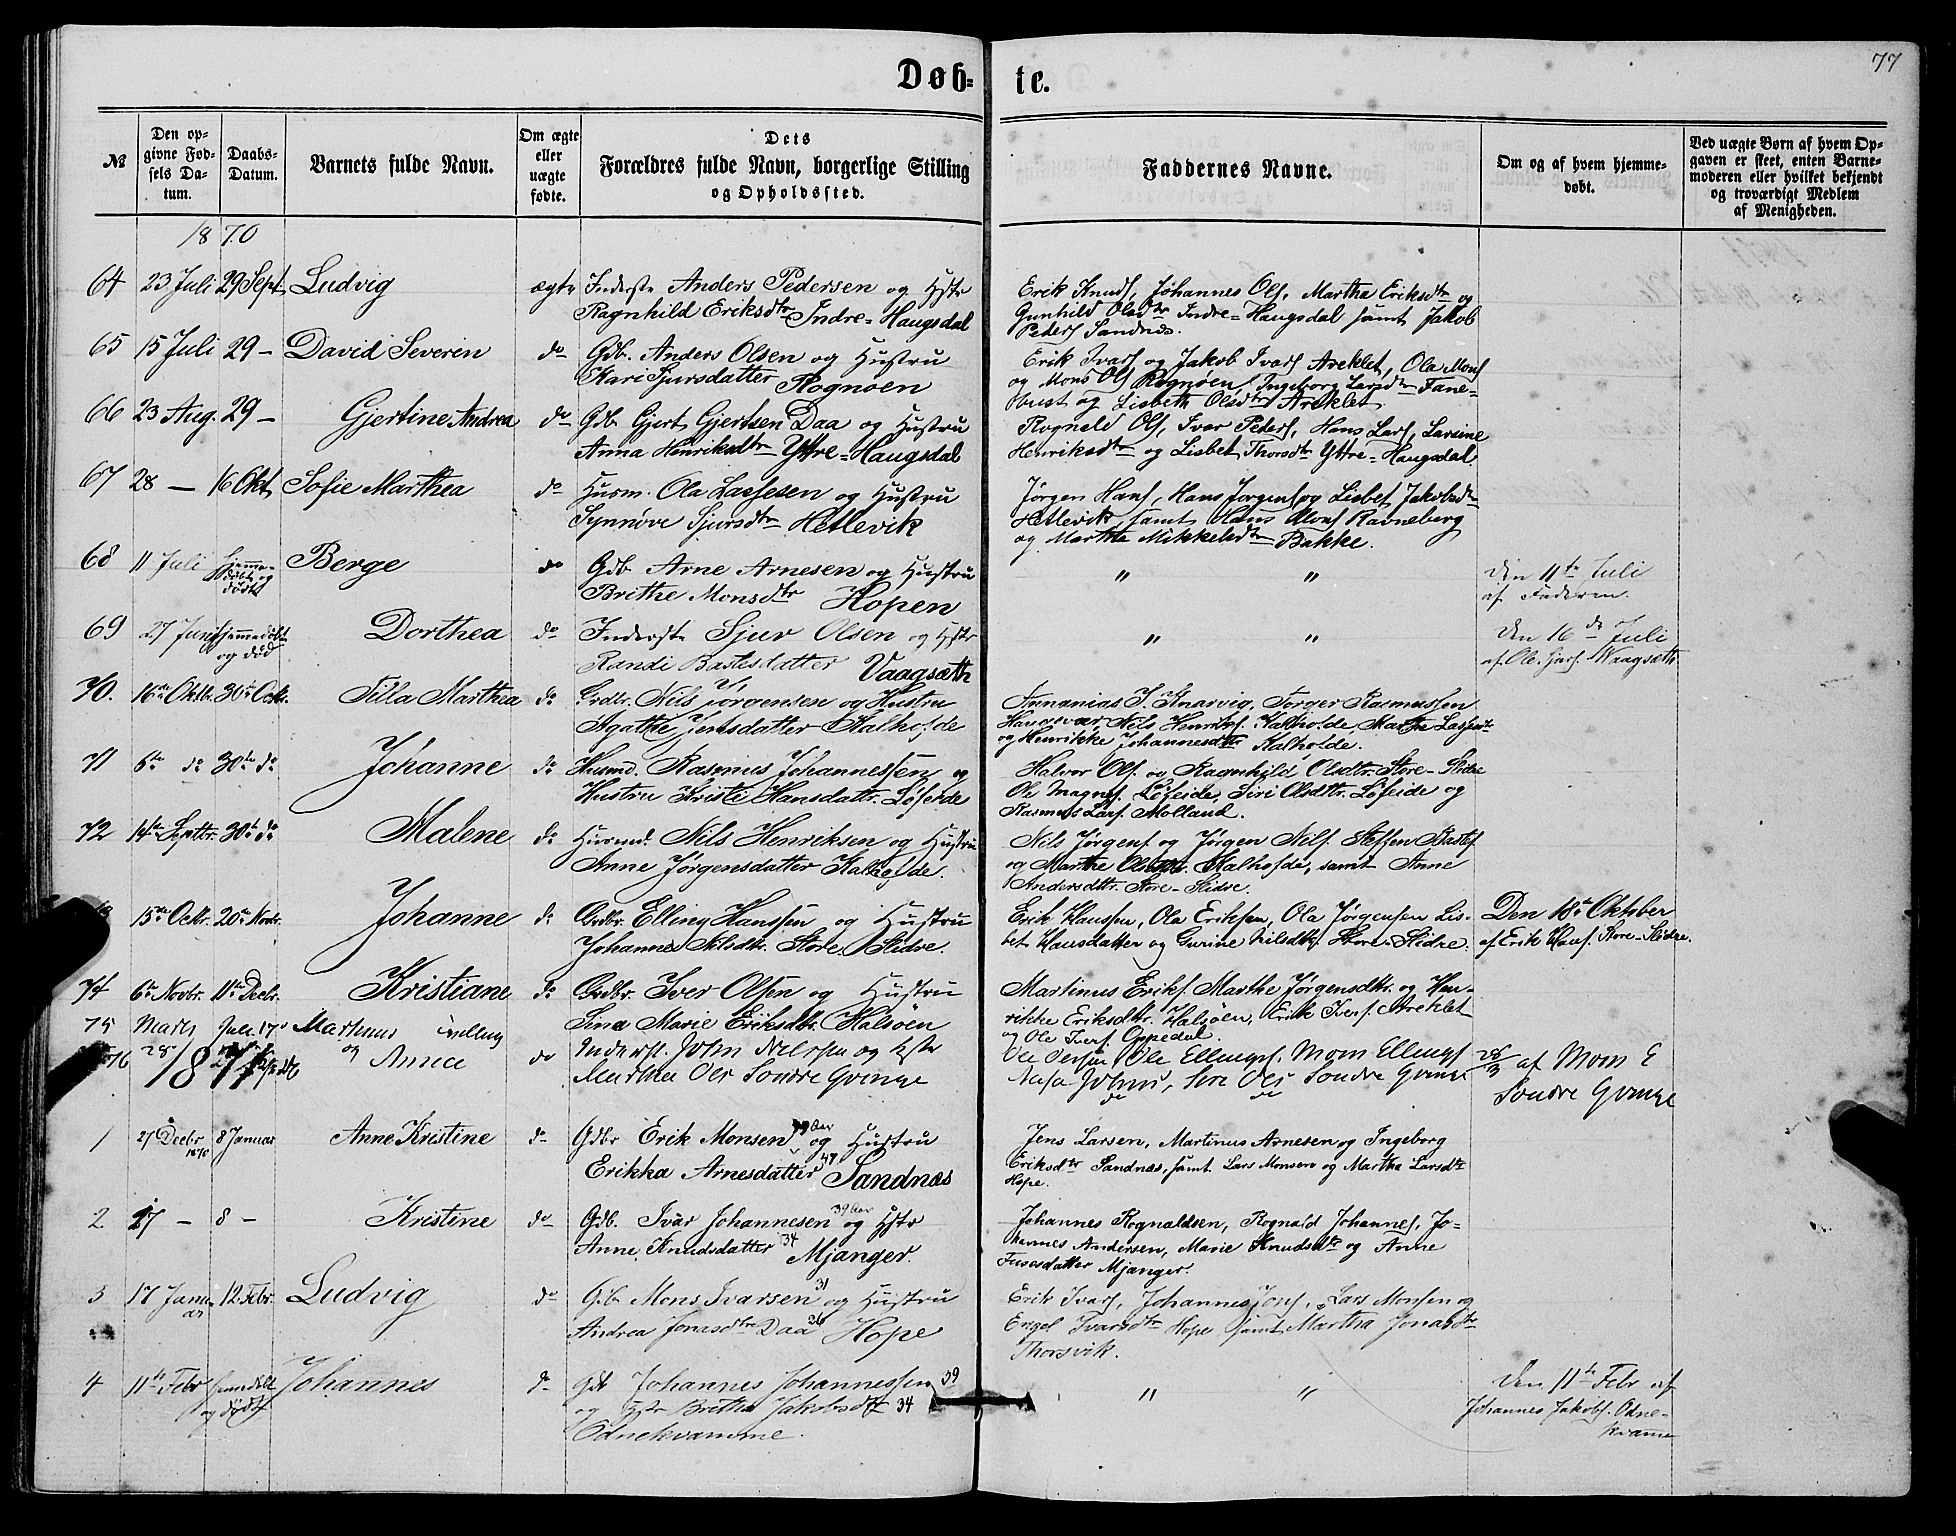 77
Døb-
te.
№
Den op-
givne Fød-
sels Da-
tum.
Daabs-
Datum.
Barnets fulde Navn.
Om ægte
eller
uægte
fødte.
Dets
Forældres fulde Navn, borgerlige Stilling
og Opholdssted.
Faddernes Navne.
Om og af hvem hjemme-
døbt.
Ved uægte Børn af hvem Op-
gaven er skeet, enten Barne-
moderen eller hvilket bekjendt
og troværdigt Medlem
af Menigheden.
1870
64 23 Juli 29 Sept Ludvig ægte Inderste Anders Pedersen og Hstr
Ragnhild Eriksdtr Indre-Haugsdal
Erik Knuds, Johannes Ols, Martha Eriksdtr og
Gunhild Olsdtr Indre-Haugsdal samt Jakob
Peders Sandnæs.
65 15 Juli 29 - David Severin do Gdb. Anders Olsen og Hustru
Kari Sjursdatter Rognøen
Erik Ivars og Jakob Ivars Areklet, Ola Mons
og Mons Ols Rognøen, Ingeborg Larsdtr Fane-
bust og Lisbeth Olsdtr Areklet
66 23 Aug. 29 - Gjertine Andrea do Gdb Gjert Gjertsen Daa og Hustru
Anna Henriksdtr Yttre-Haugsdal
Rognald Ols, Ivar Peders, Hans Lars, Larsine
Henriksdtr og Lisbet Thorsdtr Yttre-Haugsdal.
67 28 - 16 Okt Sofie Marthea do Husm. Ola Lassesen og Hustru
Synnøve Sjursdtr Hetlevik
Jørgen Hans, Hans Jørgens og Lisbet Jakobsdtr
Hetlevik samt Hans Mons Ravneberg
og Martha Mikkelsdtr Bakke.
68 11 Juli hjemme-
døbt og
dødt Berge do Gdb Arne Arnesen og Hustru
Brithe Monsdtr Hopen
" "
Den 11te Juli
af Faderen.
69 27 Juni hjemmedøbt
og død Dorthea do Inderste Sjur Olsen og Hstr
Randi Bastesdatter Vaagsæth
" "
Den 16de Juli
af Ole Waagsæth
70. 16de Oktbr. 30te Octr. Tilla Marthea do Grdbr. Nils Jørgensen og Hustru
Agathe Jensdatter Kalhofde
Annanias J. Knarvig, Torger Rasmussen
Haugsvær, Nils Henriks. Kalhofde, Marthe
og Henrikke Johannesdtr Kalhofde.
71 6te do 30te do Johanne do Husmd. Rasmus Johannessen og
Hustru Kristi Hansdattr. Løfeide
Halvor Ols. og Ragnhild Olsdtr. Store-Slidre
Ole Magnes. Løfeide, Siri Olsdttr. Løfeide og
Rasmus Lars. Molland.
72 14de Septbr. 30te do Malene do Husmd. Nils Henriksen og Hustru
Anne Jørgensdatter Kalhofde.
Nils Jørgens. og Jørgen Nils. Steffen Bastes
og Marthe Kalhofde, samt Anne
Andersdttr. Store-Slidre.
15de Octr. 20de Novbr. Johanne do Grdbr. Elling Hanssen og Hustru
Johanne Nilsdtr. Store Slidre.
Erik Hanssen, Ola Eriksen, Ola Jørgensen Lis-
bet Hansdatter og Gurine Nilsdtr. Store-Slidre.
Den 18de Oktober
af Erik Hans. Store-Slidre.
74 6te Novbr. 11te Decbr. Kristiane do Grdbr. Iver Olsen og Hustru
Sina Marie Eriksdtr. Halsøen
Martinus Eriks. Marthe Jørgensdtr. og Hen-
rikke Eriksdtr. Halsøen, Erik Ivers. Areklet
og Ole Ivers. Oppedal.
75 Marts Juli 17 Martinus tvilling
76 28 og Anna do Inderst. John Nilssen og Hstr
Martha Ols Søndre Qvinge
Ole Ellings. Mons Ellings
Johns, Ols Søndre Qvinge
28/3 af Mons E
Søndre Qvinge
1871
1 27 Decbr 1870 8 Januar Anne Kristine do Gdbr Erik Monsen 49 Aar og Hustru
Erikka Arnesdatter 47 Sandnæs
Jens Larsen, Martinus Arnesen og Ingeborg
Eriksdtr Sandnæs, samt Lars Monsen og Martha Larsdtr
Hope.
2 27 - 8 - Kristine do Gdb. Ivar Johannesen 39 Aar og Hstr
Anne Knudsdatter 34 Mjanger.
Johannes Rognaldsen, Rognald Johannes, Jo-
hannes Andersen, Marie Knudsdtr og Anne
Fusesdatter Mjanger.
3 17 Janu
ar 12 Febr. Ludvig do Gdb Mons Ivarsen 31 og Hustru
Andrea Jonasdtr Daa 26 Hope
Erik Ivars, Johannes Jons, Lars Monsen og
Engel Ivarsdtr Hope samt Martha Jonasdtr
Thorsvik.
4 11te Febr hjemdøbt
og dødt Johannes do Gdb Johannes Johannessen 39
og Hstr Britha Jakobsdtr 34
Odnekvamme.
" "
Den 11te Febr af
Johannes Jakobs. Odne-
kvamme